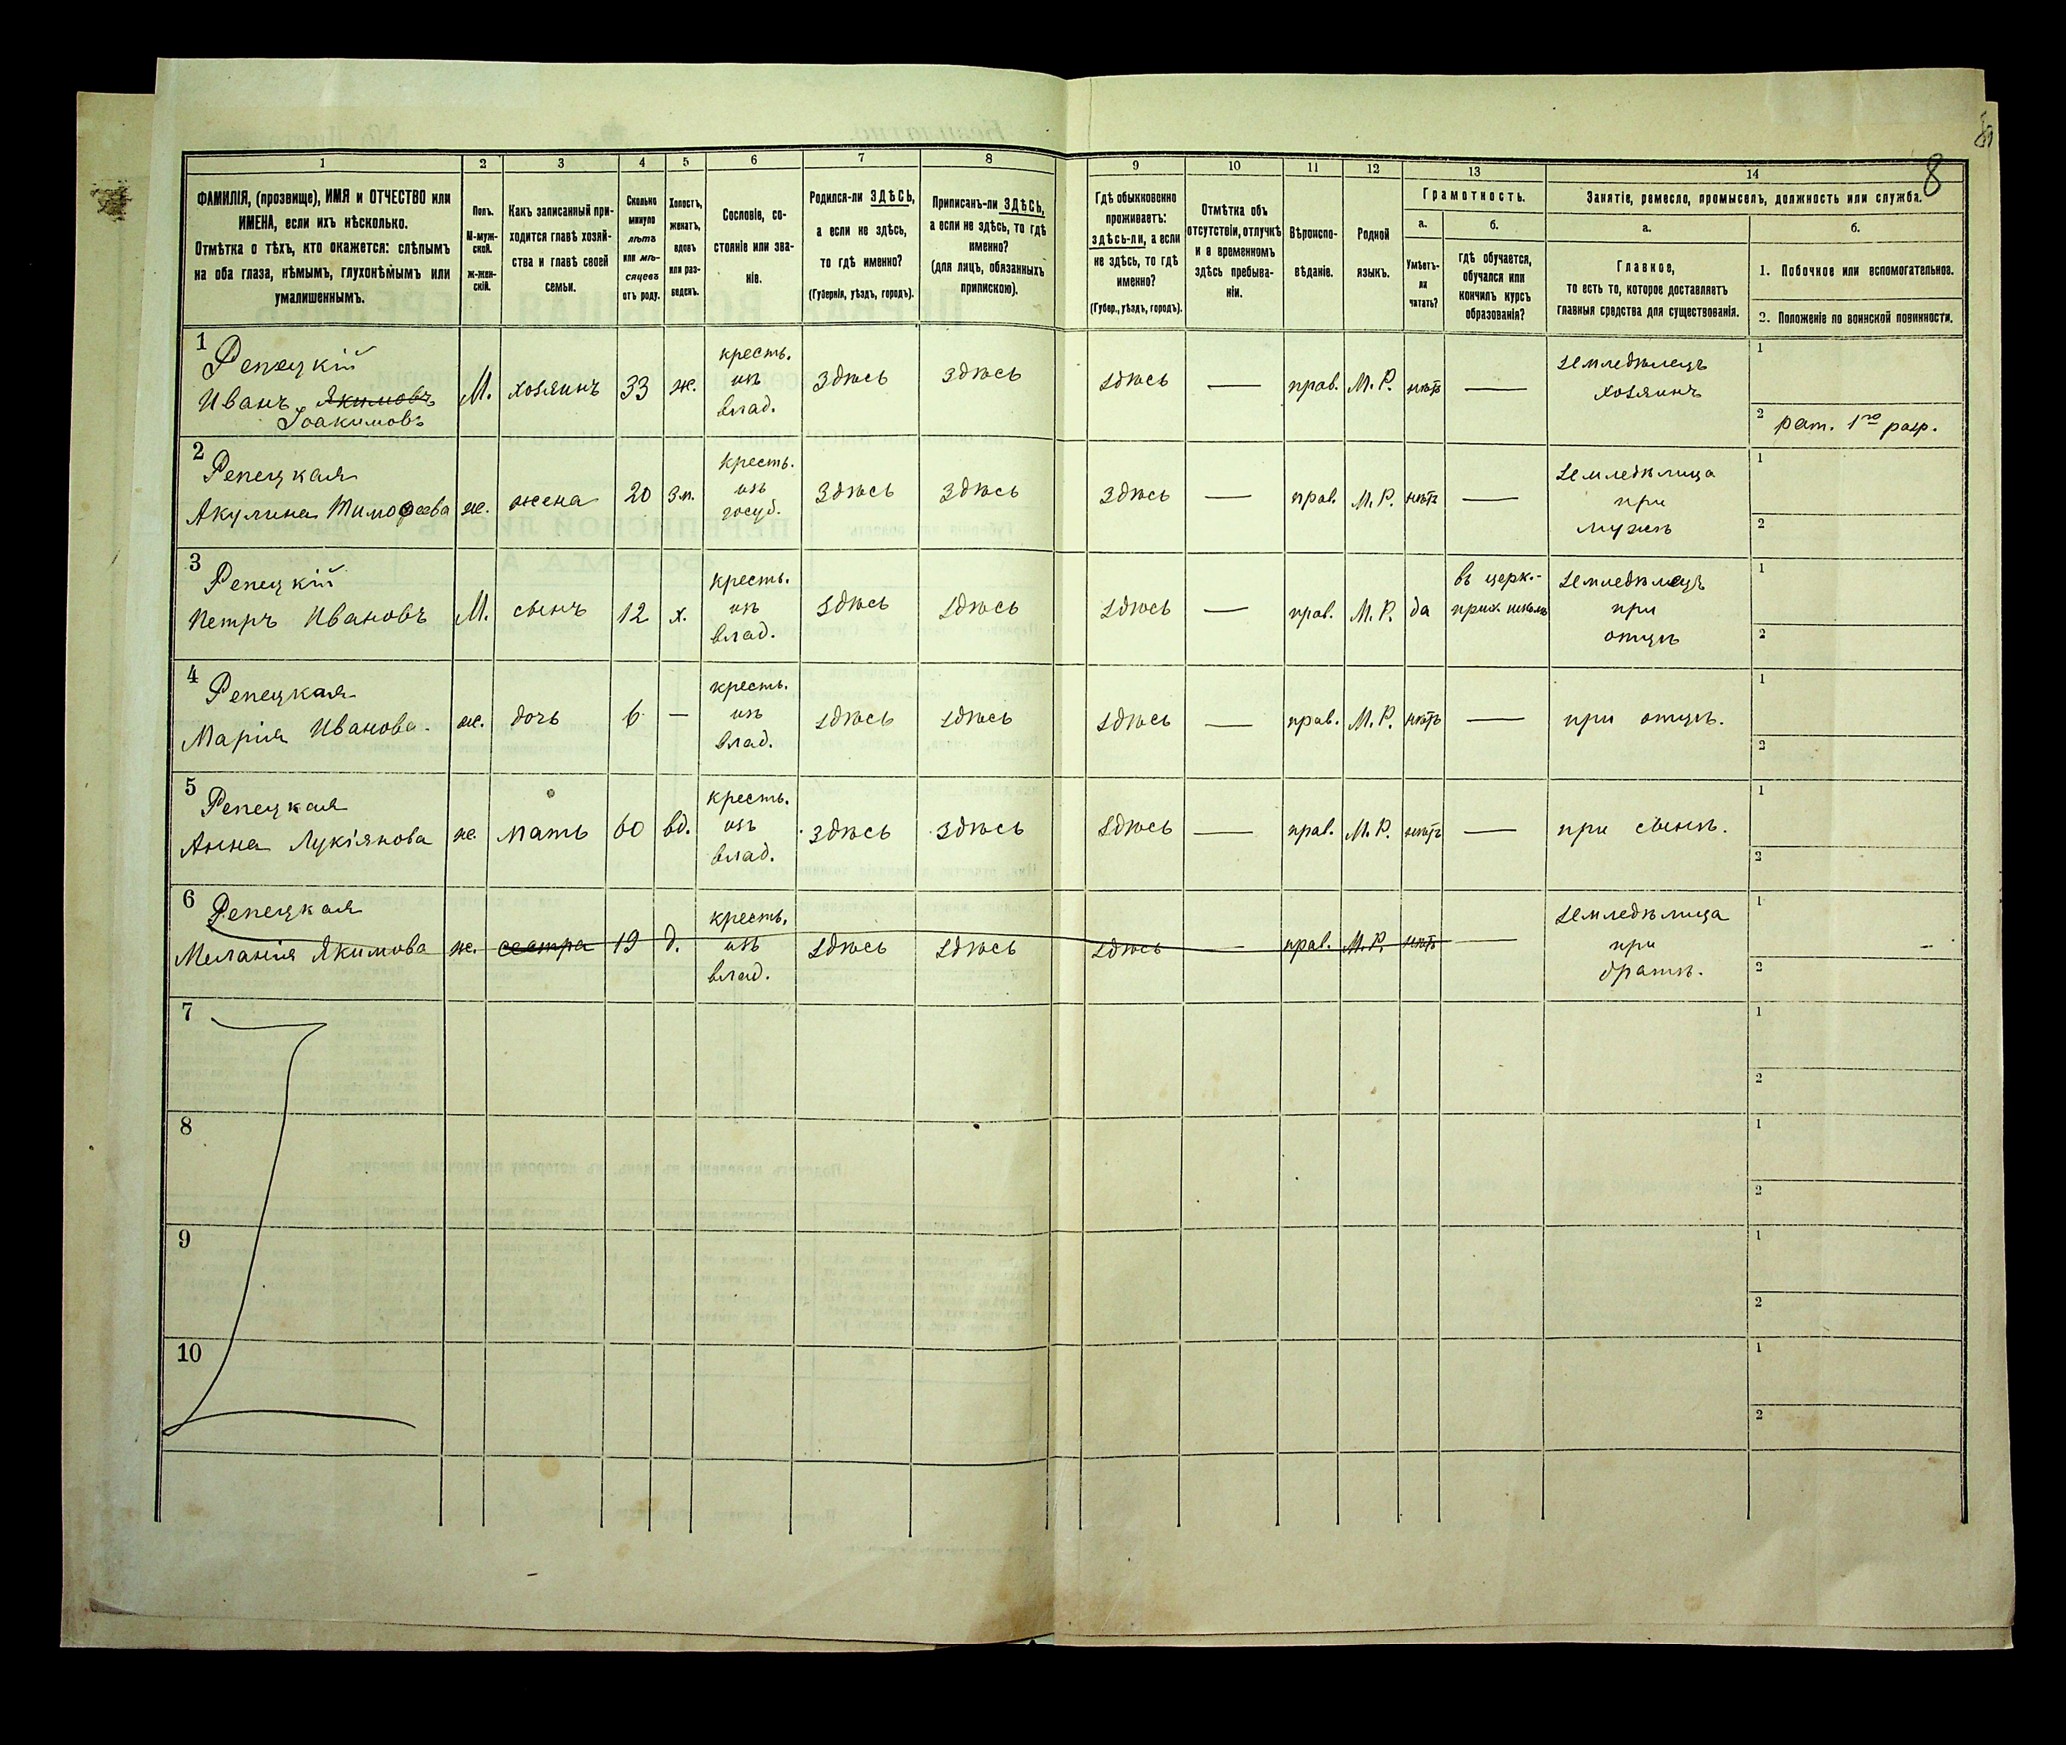 8
1 2 3 4 5 6 7 8 9 10 11 12 13 14
ФАМИЛІЯ, (прозвище), ИМЯ и ОТЧЕСТВО или
ИМЕНА, если ихъ нѣсколько.
Отмѣтка о тѣхъ, кто окажется: слѣпымъ
на оба глаза, нѣмымъ, глухонѣмымъ или
умалишеннымъ.
Полъ.
М-муж-
ской.
ж-жен-
скій.
Какъ записанный при-
ходится главѣ хозяй-
ства и главѣ своей
семьи.
Сколько
минуло
лѣтъ
или мѣ-
сяцевъ
отъ роду.
Холостъ,
женатъ,
вдовъ
или раз-
веденъ.
Сословіе, со-
стояніе или зва-
ніе.
Родился-ли ЗДѢСЬ,
а если не здѣсь,
то гдѣ именно?
(Губернія, уѣздъ, городъ).
Приписанъ-ли ЗДѢСЬ,
а если не здѣсь, то гдѣ
именно?
(для лицъ, обязанныхъ
припискою).
Гдѣ обыкновенно
проживаетъ:
здѣсь-ли, а если
не здѣсь, то гдѣ
именно?
(Губер., уѣздъ, городъ).
Отмѣтка объ
отсутствіи, отлучкѣ
и о временномъ
здѣсь пребыва-
ніи.
Вѣроиспо-
вѣданіе.
Родной
языкъ.
Грамотность.
а.
Умѣетъ-
ли
читать?
б.
гдѣ обучается,
обучался или
кончилъ курсъ
образованія?
Занятіе, ремесло, промыселъ, должность или служба.
а.
Главное,
то есть то, которое доставляетъ
главныя средства для существованія.
б.
1. Побочное или вспомогательное.
2. Положеніе по воинской повинности.
1
Репецкій
Иванъ Якимовъ
Іоакимовъ
М. хозяинъ 33 ж.
кресть.
изъ
влад.
здѣсь здѣсь здѣсь — прав. М. Р. нѣтъ —
земледѣлецъ
хозяинъ
1
2 рат. 1го разр.
2
Репецкая
Акулина Тимофеева
ж. жена 20 зм.
кресть.
изъ
госуд.
здѣсь здѣсь здѣсь — прав. М. Р. нѣтъ —
земледѣлица
при
мужѣ
1
2
3
Репецкій
Петръ Ивановъ
М. сынъ 12 х.
кресть.
изъ
влад.
здѣсь здѣсь здѣсь — прав. М. Р. да
въ церк.-
прих. школѣ
земледѣлецъ
при
отцѣ
1
2
4
Репецкая
Марія Иванова.
ж. дочь 6 —
кресть.
изъ
влад.
здѣсь здѣсь здѣсь — прав. М. Р. нѣтъ —
при отцѣ.
1
2
5
Репецкая
Анна Лукіянова
ж. мать 60 вд.
кресть.
изъ
влад.
здѣсь здѣсь здѣсь — прав. М. Р. нѣтъ —
при сынѣ.
1
2
6
Репецкая
Меланія Якимова
ж. сестра 19 д.
кресть.
изъ
влад.
здѣсь здѣсь здѣсь — прав. М. Р. нѣтъ —
земледѣлица
при
братѣ.
1
2
7
1
2
8
1
2
9
1
2
10
1
2